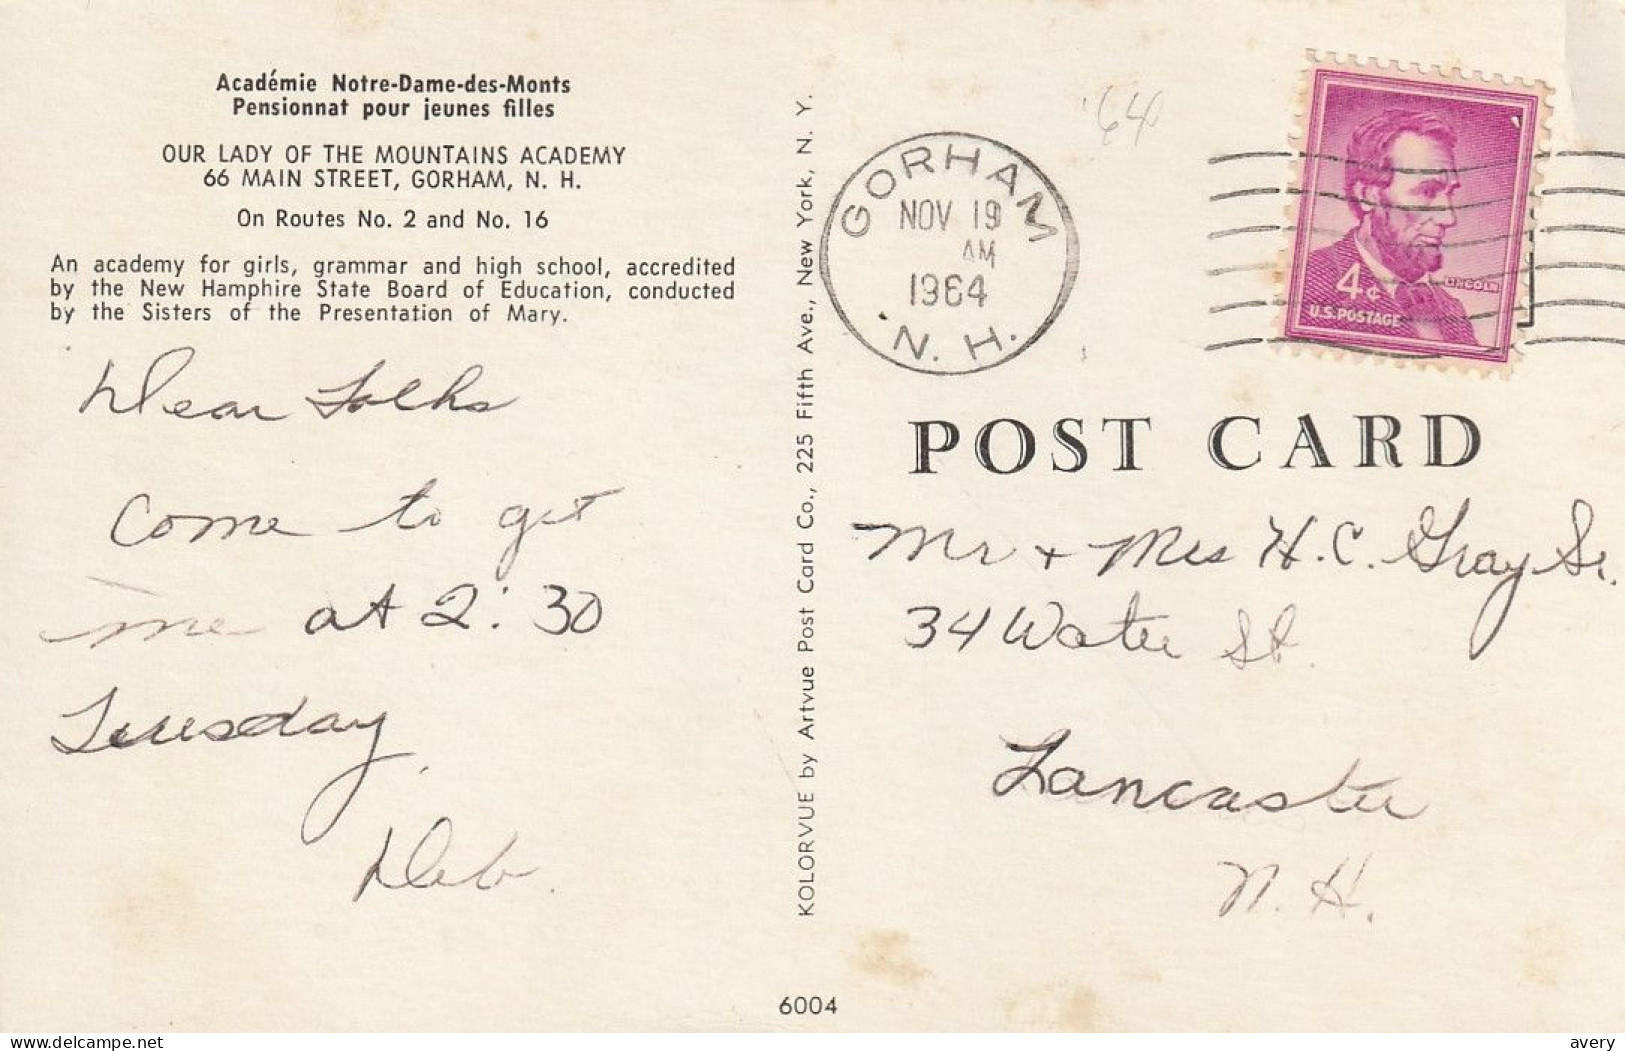 Académie Notre-Dame-des-Monts
Pensionnat pour jeunes filles
OUR LADY OF THE MOUNTAINS ACADEMY
66 MAIN STREET, GORHAM, N. H.
On Routes No. 2 and No. 16
An academy for girls, grammar and high school, accredited
by the New Hampshire State Board of Education, conducted
by the Sisters of the Presentation of Mary.
Dear Folks
Come to get
me at 2:30
Tuesday,
Deb.
KOLORVUE by Artvue Post Card Co., 225 Fifth Ave., New York, N. Y.
6004
'64
GORHAM
NOV 19
AM
1964
N. H.
4¢
LINCOLN
U.S. POSTAGE
POST CARD
Mr + Mrs H.C. Gray Sr.
34 Water St.
Lancaster
N. H.
delcampe.net
avery